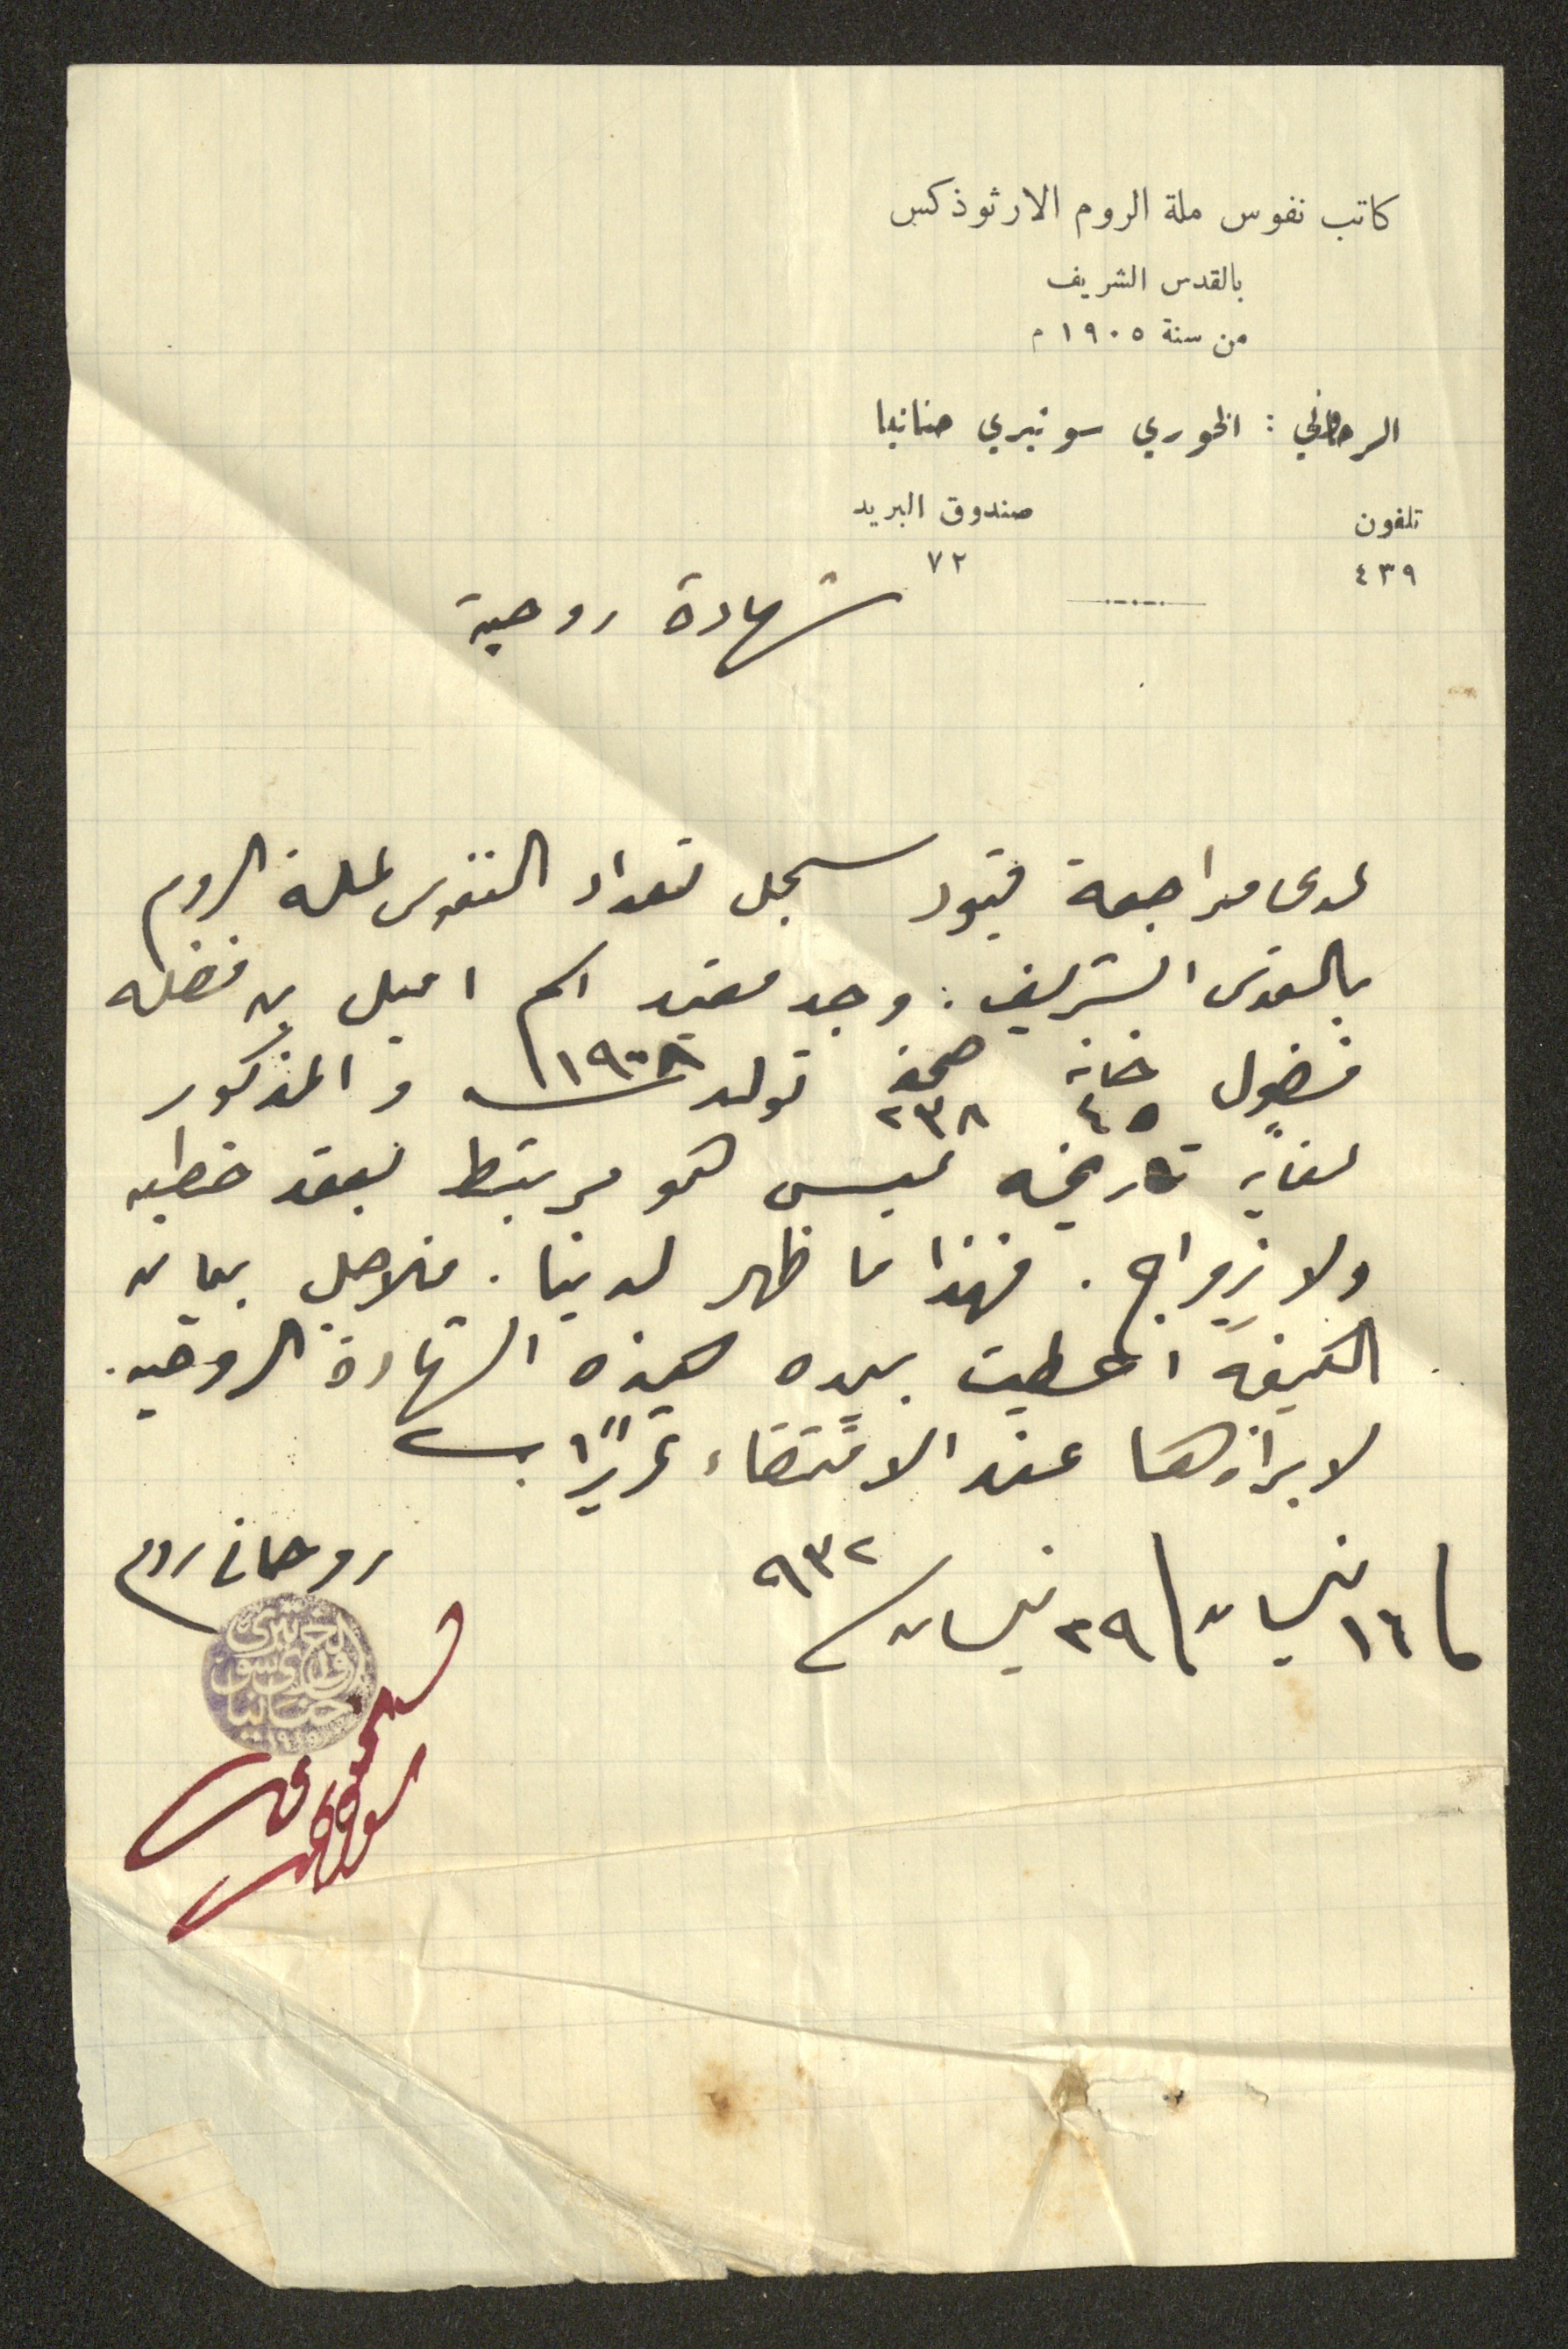 كاتب نفوس ملة الروم الارثوذكس
بالقدس الشريف
من سنة ١٩٠٥ م
الروحاني : الخوري سوتيري حنانيا
تلفون صندوق البريد
٤٣٩ ٧٢
شهادة روحية
لدى مراجعة قيود سجل تعداد النفوس لملة الروم
بالقدس الشريف : وجد مقيد اسم اميل بن فضله
فضول خانه ٤٥ صحيفه ٢٣٨ تولد سنة ١٩٠٨ والمذكور
لغاية تاريخه ليس هو مرتبط بعقد خطبه
ولا زواج . فهذا ما ظهر لدينا . فلاجل بيان
الكيفية اعطيت بيده هذه الشهادة الروحيه .
لابرازها عند الاقتضاء تحريرًا
١٦ نيسان ٢٩ نيسان ٩٣٢
روحاني روم
الخوري
سوتيري
حنانيا